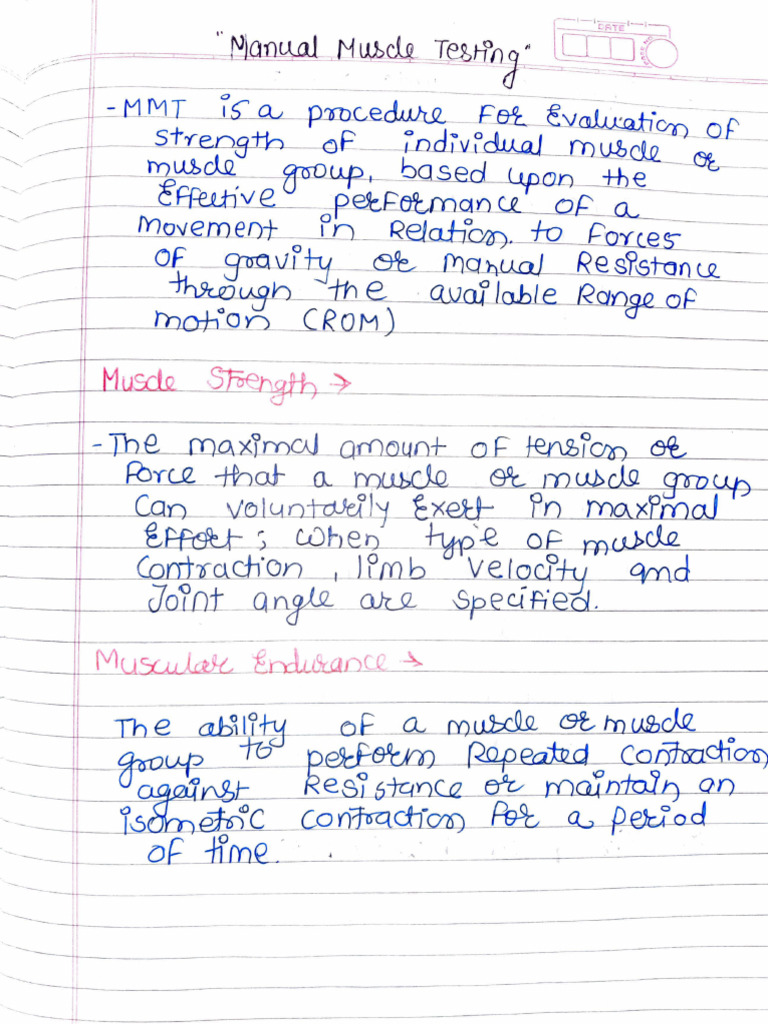 "Manual Muscle Testing"
DATE
- MMT is a procedure for Evaluation of
strength of individual muscle or
muscle group, based upon the
Effective performance of a
Movement in Relation. to Forces
of gravity or manual Resistance
through the available Range of
motion (ROM)
Muscle Strength →
- The maximal amount of tension or
Force that a muscle or muscle group
can voluntarily Exert in maximal
Effort; when type of muscle
contraction, limb velocity and
Joint angle are specified.
Muscular Endurance →
The ability of a muscle or muscle
group to perform Repeated contraction
against Resistance or maintain an
isometric contraction for a period
of time.